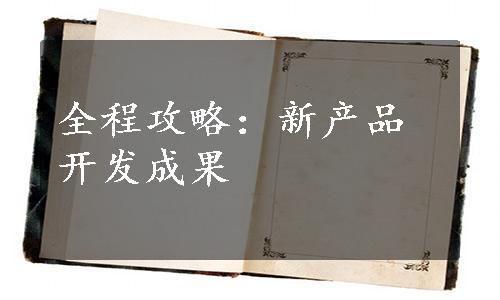 全程攻略：新产品
开发成果